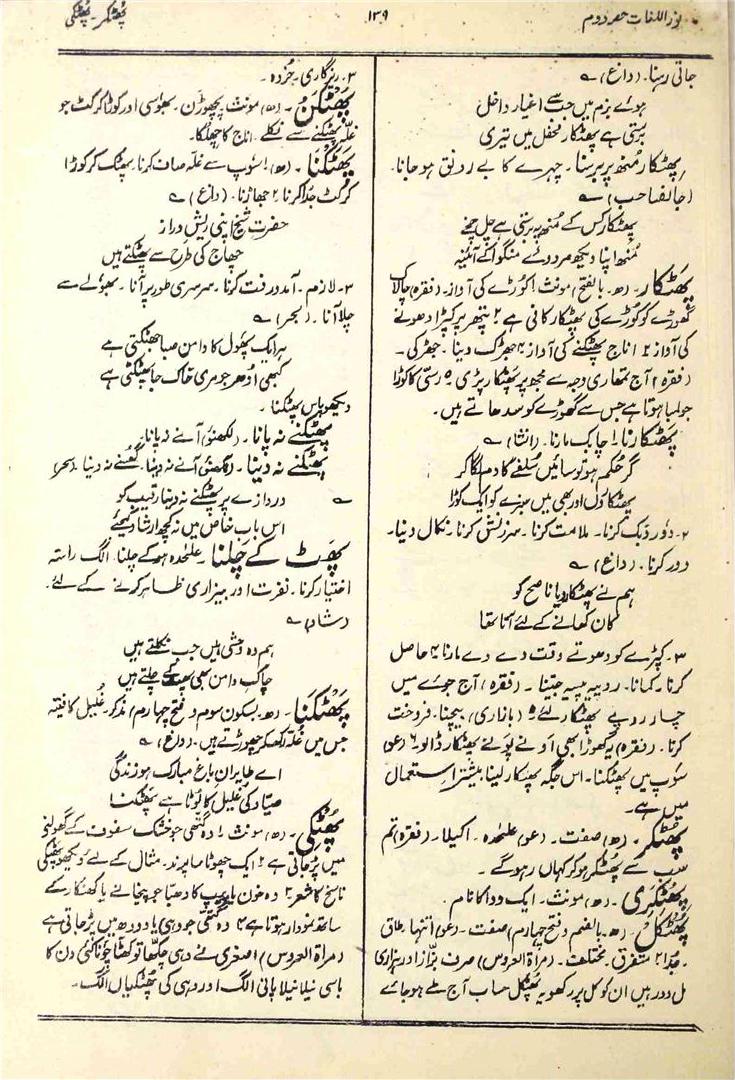 نور اللغات حصہ دوم
۱۳۹
پُھٹکر۔ پُھٹکی
جاتی رہنا۔ (داغ) ؎
ہوئے بزم میں جب سے اغیار داخل
برستی ہے پھٹکار محفل میں تیری
پھٹکار مُنھ پر برسنا۔ چہرے کا بے رونق ہو جانا۔
(جانصاحب) ؎
پھٹکار کس کے مُنھ پہ برستی ہے چل چخے
مُنھ اپنا دیکھ مردوے منگوا کے آئینہ
پھَٹکار۔ (ھ۔ بالفتح) مونث ۱ کوڑے کی آواز۔ (فقرہ) چالاک
گھوڑے کو کوڑے کی پھٹکار کافی ہے ۲ پتھر پر کپڑا دھونے
کی آواز ۳ اناج پھٹکنے کی آواز ۴ جھڑک دینا۔ جھڑکی۔
(فقرہ) آج تمھاری وجہ سے مجھ پر پھٹکار پڑی ۵ رسّی کا کوڑا
جو لمبا ہوتا ہے جس سے گھوڑے کو سدھاتے ہیں۔
پھَٹکارنا۔ ۱ چابک مارنا۔ (انشا) ؎
گر حکم ہو تو سائیں سُلفے کا دم لگا کر
پھٹکاروں اور بھی میں سبزے کو ایک کوڑا
۲۔ دُور دَبَک کرنا۔ ملامت کرنا۔ سرزنش کرنا۔ نکال دینا۔
دور کرنا۔ (داغ) ؎
ہم نے پھٹکار دیا ناصح کو
کان کھانے کے لئے آتا تھا
۳۔ کپڑے کو دھوتے وقت دے دے مارنا ۴ حاصل
کرنا۔ کمانا۔ روپیہ پیسہ جیتنا۔ (فقرہ) آج جوے میں
چار روپے پھٹکار لئے ۵ (بازاری) بیچنا۔ فروخت
کرنا۔ (فقرہ) یہ گھوڑا بھی اَونے پَونے پھٹکار ڈالو ۶ (عو)
سُوپ میں پھٹکنا۔ اس جگہ پھٹکار لینا بیشتر استعمال
میں ہے۔
پُھٹکر۔ (ھ) صفت۔ (عو) علٰحدہ۔ اکیلا۔ (فقرہ) تم
سب سے پُھٹکر ہو کر کہاں رہو گے۔
پھِٹکری۔ (ھ) مونث۔ ایک دوا کا نام۔
پُھٹکَل۔ (ھ۔ بالضم و فتح چہارم) صفت۔ (عو) تنہا۔ طاق
۔ جدا ۲ متفرق۔ مختلف۔ (مراۃ العروس) صرف بزّاز اور ہزاری
مل دور ہیں ان کو کل پر رکھو یہ پُھٹکل حساب آج طے ہو جائے
۳۔ ریزگاری۔ خُردہ۔
پھَٹکن۔ (ھ) مونث۔ پچھوڑن۔ بھوسی اور کوڑا کرکٹ جو
غلّہ پھٹکنے سے نکلے۔ اناج کا چھلکا۔
پھَٹکنا۔ (ھ) ۱ سُوپ سے غلّہ صاف کرنا۔ پھٹک کر کوڑا
کرکٹ جدا کرنا ۲ جھاڑنا۔ (داغ) ؎
حضرتِ شیخ اپنی ریشِ دراز
چھاج کی طرح سے پھٹکتے ہیں
۳۔ لازم۔ آمد و رفت کرنا۔ سرسری طور پر آنا۔ بھولے سے
چلا آنا۔ (بحر) ؎
ہر ایک پھُول کا دامن صبا جھٹکتی ہے
کبھی اُدھر جو مری خاک جا پھٹکتی ہے
دیکھو پاس پھٹکنا۔
پھٹکنے نہ پانا۔ (لکھنؤ) آنے نہ پانا۔
پھٹکنے نہ دینا۔ (لکھنؤ) آنے نہ دینا۔ گھُسنے نہ دینا۔ (سحر)
؎ دروازے پر پھٹکنے نہ دینا رقیب کو
اس بابِ خاص میں نہ کچھ ارشاد کیجئے
پھَٹ کے چلنا۔ علٰحدہ ہو کے چلنا۔ الگ راستہ
اختیار کرنا۔ نفرت اور بیزاری ظاہر کرنے کے لئے۔
(رشاد) ؎
ہم وہ وحشی ہیں جب نکلتے ہیں
چاکِ دامن بھی پھٹ کے چلتے ہیں
پَھٹکنا۔ (ھ۔ بسکون سوم و فتح چہارم) مذکر۔ غُلیل کا فیتہ
جس میں غلّہ رکھ کر چھوڑتے ہیں۔ (داغ) ؎
اے طایرانِ باغ مبارک ہو زندگی
صیّاد کی غلیل کا ٹوٹا ہے پھٹکنا
پُھٹکی۔ (ھ) مونث ۱ وہ گٹھی جو خشک سفوف کے گھولنے
میں پڑ جاتی ہے ۲ ایک چھوٹا سا پرند۔ مثال کے لئے دیکھو پھٹکی
ناسخ کا شعر ۳ وہ خون یا پیپ کا دھبا جو پخانے یا کھنکار کے
ساتھ نمودار ہوتا ہے ۴ وہ گٹھی جو دہی یا دودھ میں پڑ جاتی ہے
(مراۃ العروس) اصغری نے دہی چکھا تو کھٹا چونا کئی دن کا
باسی نیلا نیلا پانی الگ اور دہی کی پھٹکیاں الگ۔